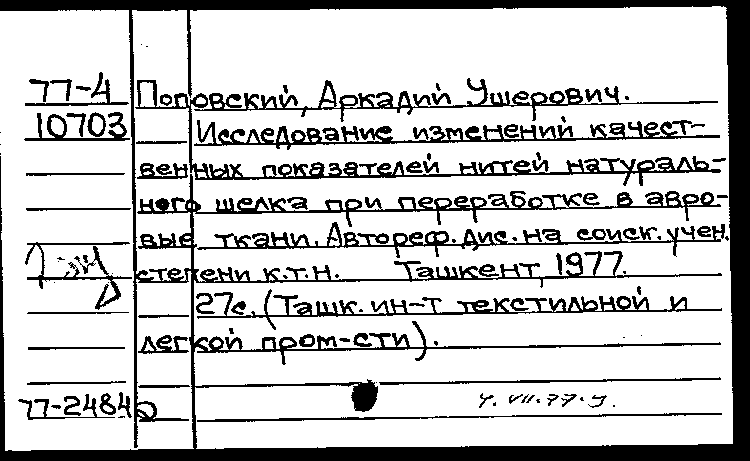 77-4 Поповский, Аркадий Ушерович.
10703 Исследование изменений качест-
венных показателей нитей натураль-
ного шелка при переработке в авро-
вые ткани. Автореф. дис. на соиск. учен.
степени к.т.н. Ташкент, 1977.
27с. (Ташк. ин-т текстильной и
легкой пром-сти).
77-2484